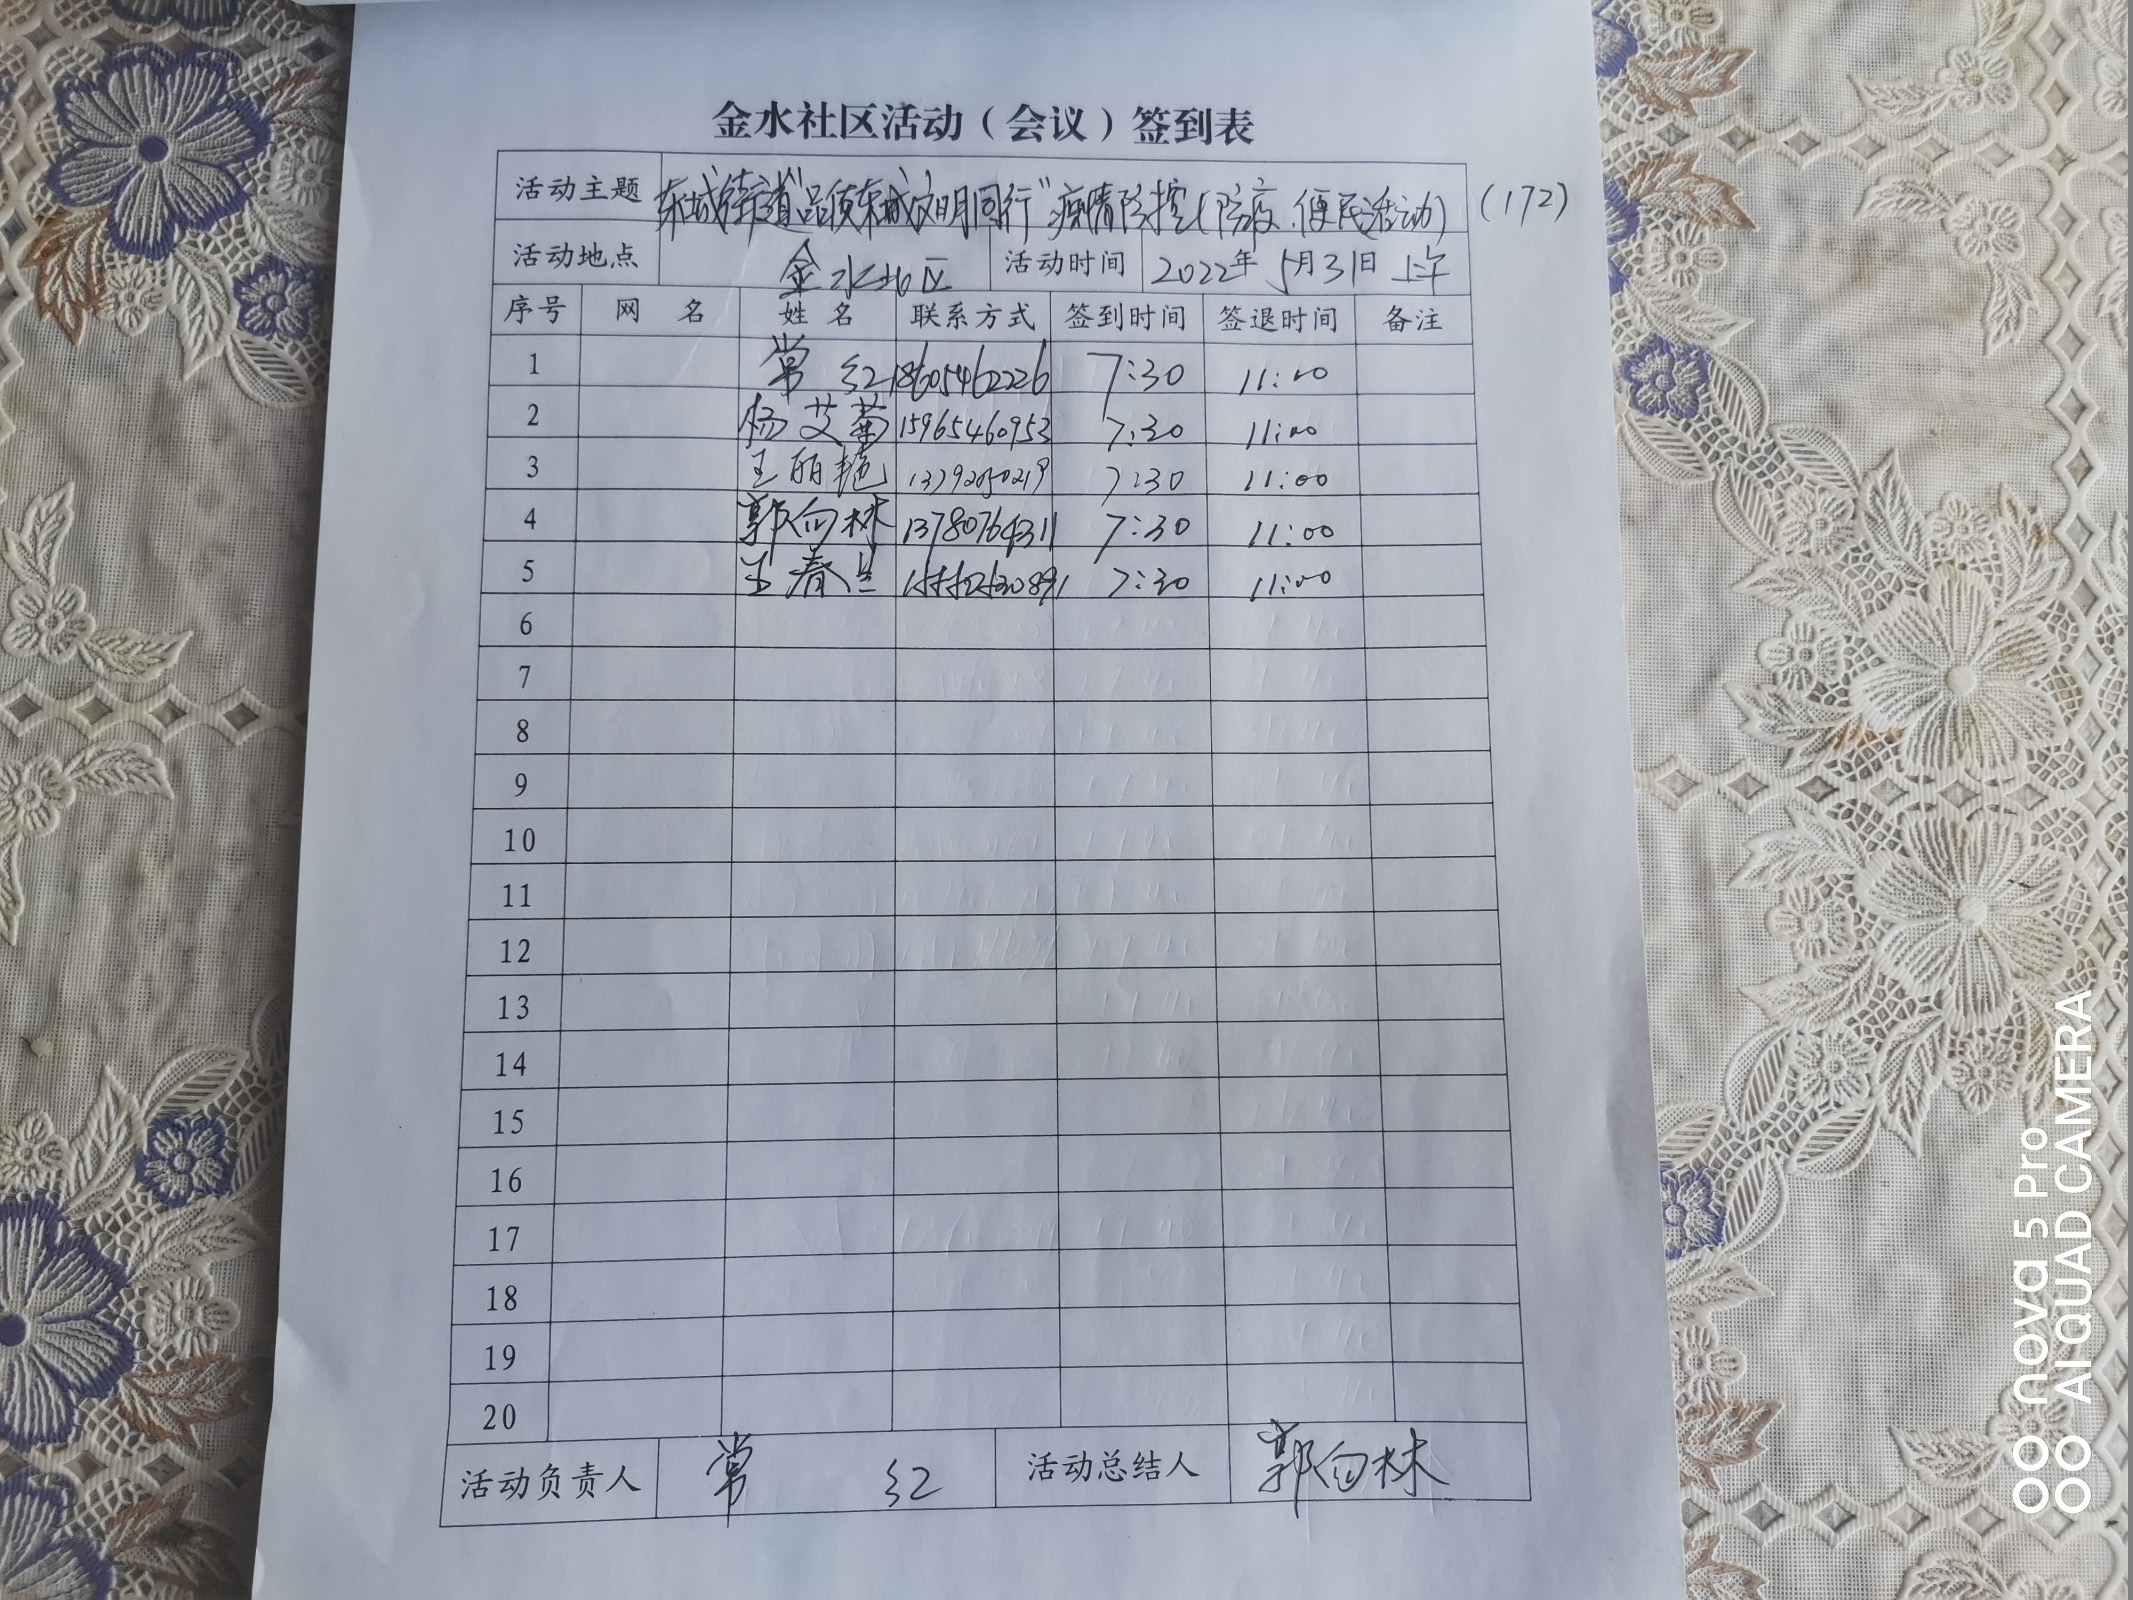 金水社区活动（会议）签到表
活动主题 东城街道"品质东城文明同行"疫情防控(防疫、便民活动) (172)
活动地点 金水社区 活动时间 2022年5月31日上午
序号 网 名 姓 名 联系方式 签到时间 签退时间 备注
1 常 红 18605462226 7:30 11:00
2 杨艾菊 15965460953 7:30 11:00
3 王丽艳 7:30 11:00
4 郭向林 13780764311 7:30 11:00
5 王春兰 7:30 11:00
6
7
8
9
10
11
12
13
14
15
16
17
18
19
20
活动负责人 常 红 活动总结人 郭向林
nova 5 Pro
AI QUAD CAMERA